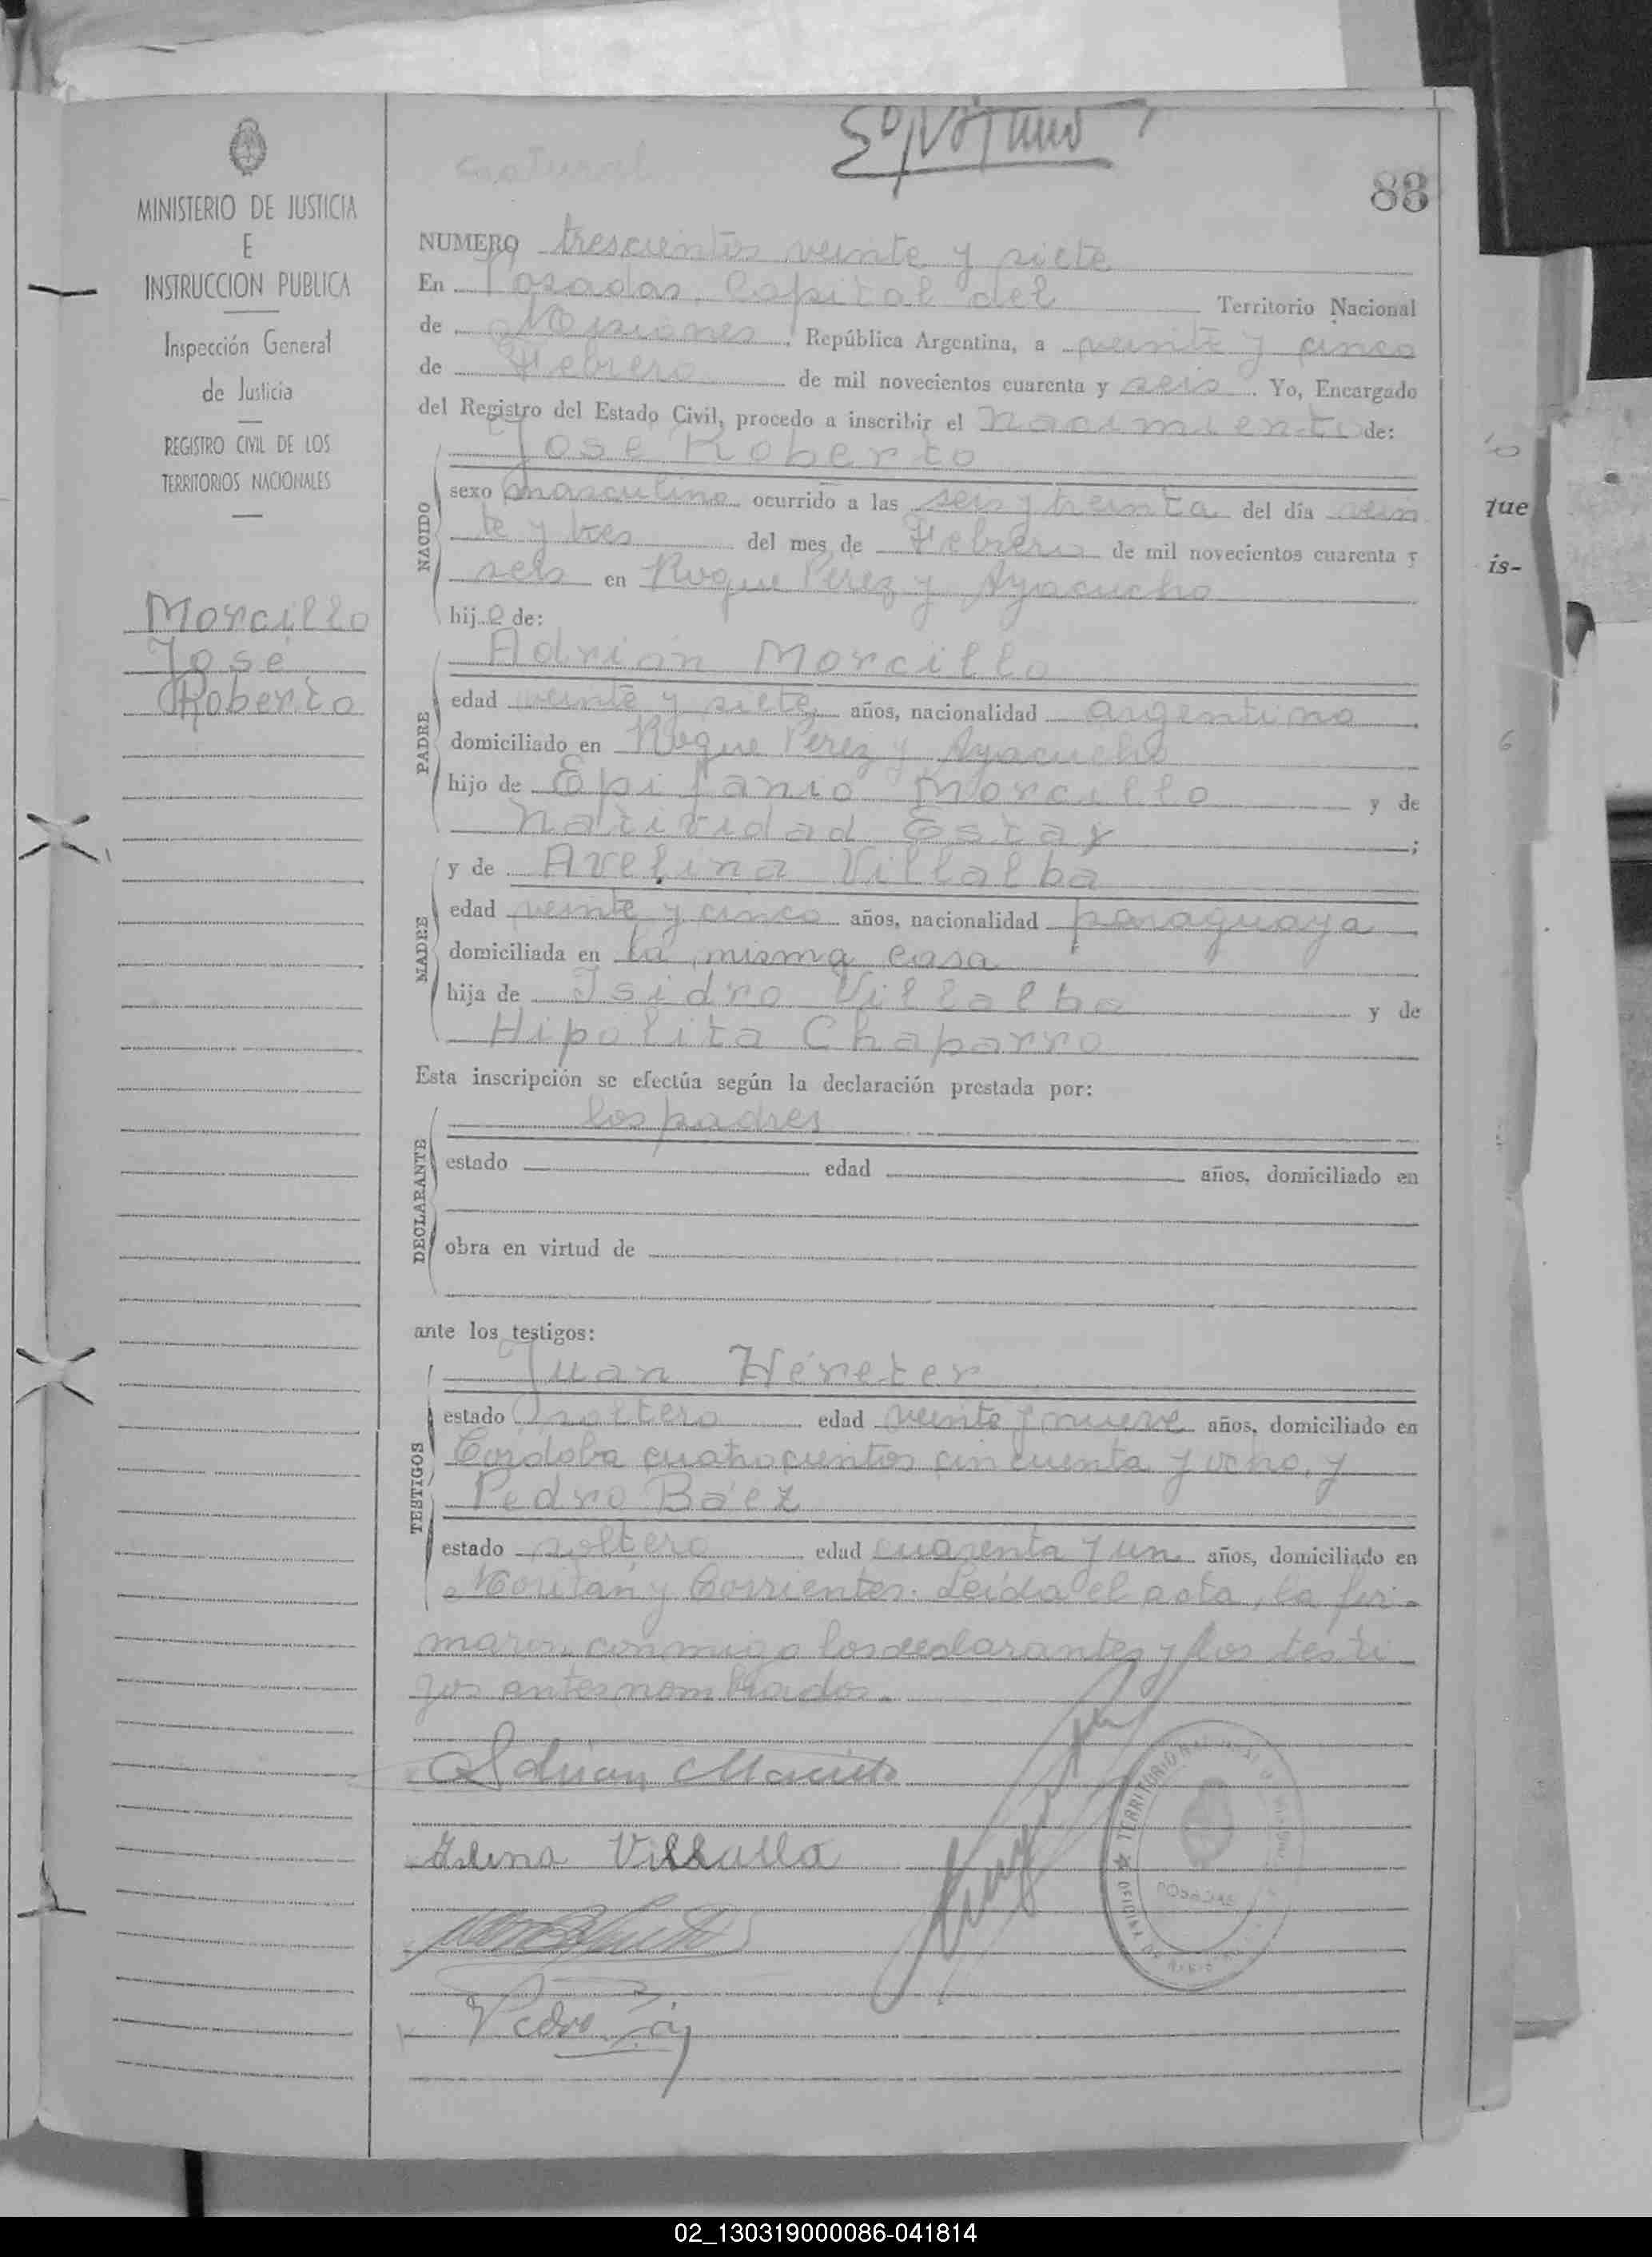 83
MINISTERIO DE JUSTICIA
E
INSTRUCCION PUBLICA
Inspección General
de Justicia
REGISTRO CIVIL DE LOS
TERRITORIOS NACIONALES
Morcillo
José
Roberto
NUMERO trescientos veinte y siete
En Posadas, Capital del Territorio Nacional
de Misiones, República Argentina, a veinte y cinco
de Febrero de mil novecientos cuarenta y seis. Yo, Encargado
del Registro del Estado Civil, procedo a inscribir el nacimiento de:
José Roberto
NACIDO
sexo masculino ocurrido a las seis y treinta del día vein
te y tres del mes de Febrero de mil novecientos cuarenta y
seis en Roque Pérez y Ayacucho
hijo de:
PADRE
Adrián Morcillo
edad veinte y siete años, nacionalidad argentino
domiciliado en Roque Pérez y Ayacucho
hijo de Epifanio Morcillo y de
Natividad ;
MADRE
y de Avelina Villalba
edad veinte y cinco años, nacionalidad paraguaya
domiciliada en la misma casa
hija de Isidro Villalba y de
Hipólita Chaparro
Esta inscripción se efectúa según la declaración prestada por:
DECLARANTE
los padres
estado edad años, domiciliado en
obra en virtud de
ante los testigos:
TESTIGOS
Juan Héreter
estado soltero edad veinte y nueve años, domiciliado en
Córdoba cuatrocientos cincuenta y ocho, y
Pedro Báez
estado soltero edad cuarenta y un años, domiciliado en
y Corrientes. Leída el acta, la fir-
maron conmigo los declarantes y los testi
gos antes nombrados.
Adrian Morcillo
Villalba
Pedro
POSADAS
que
is-
6
02_130319000086-041814